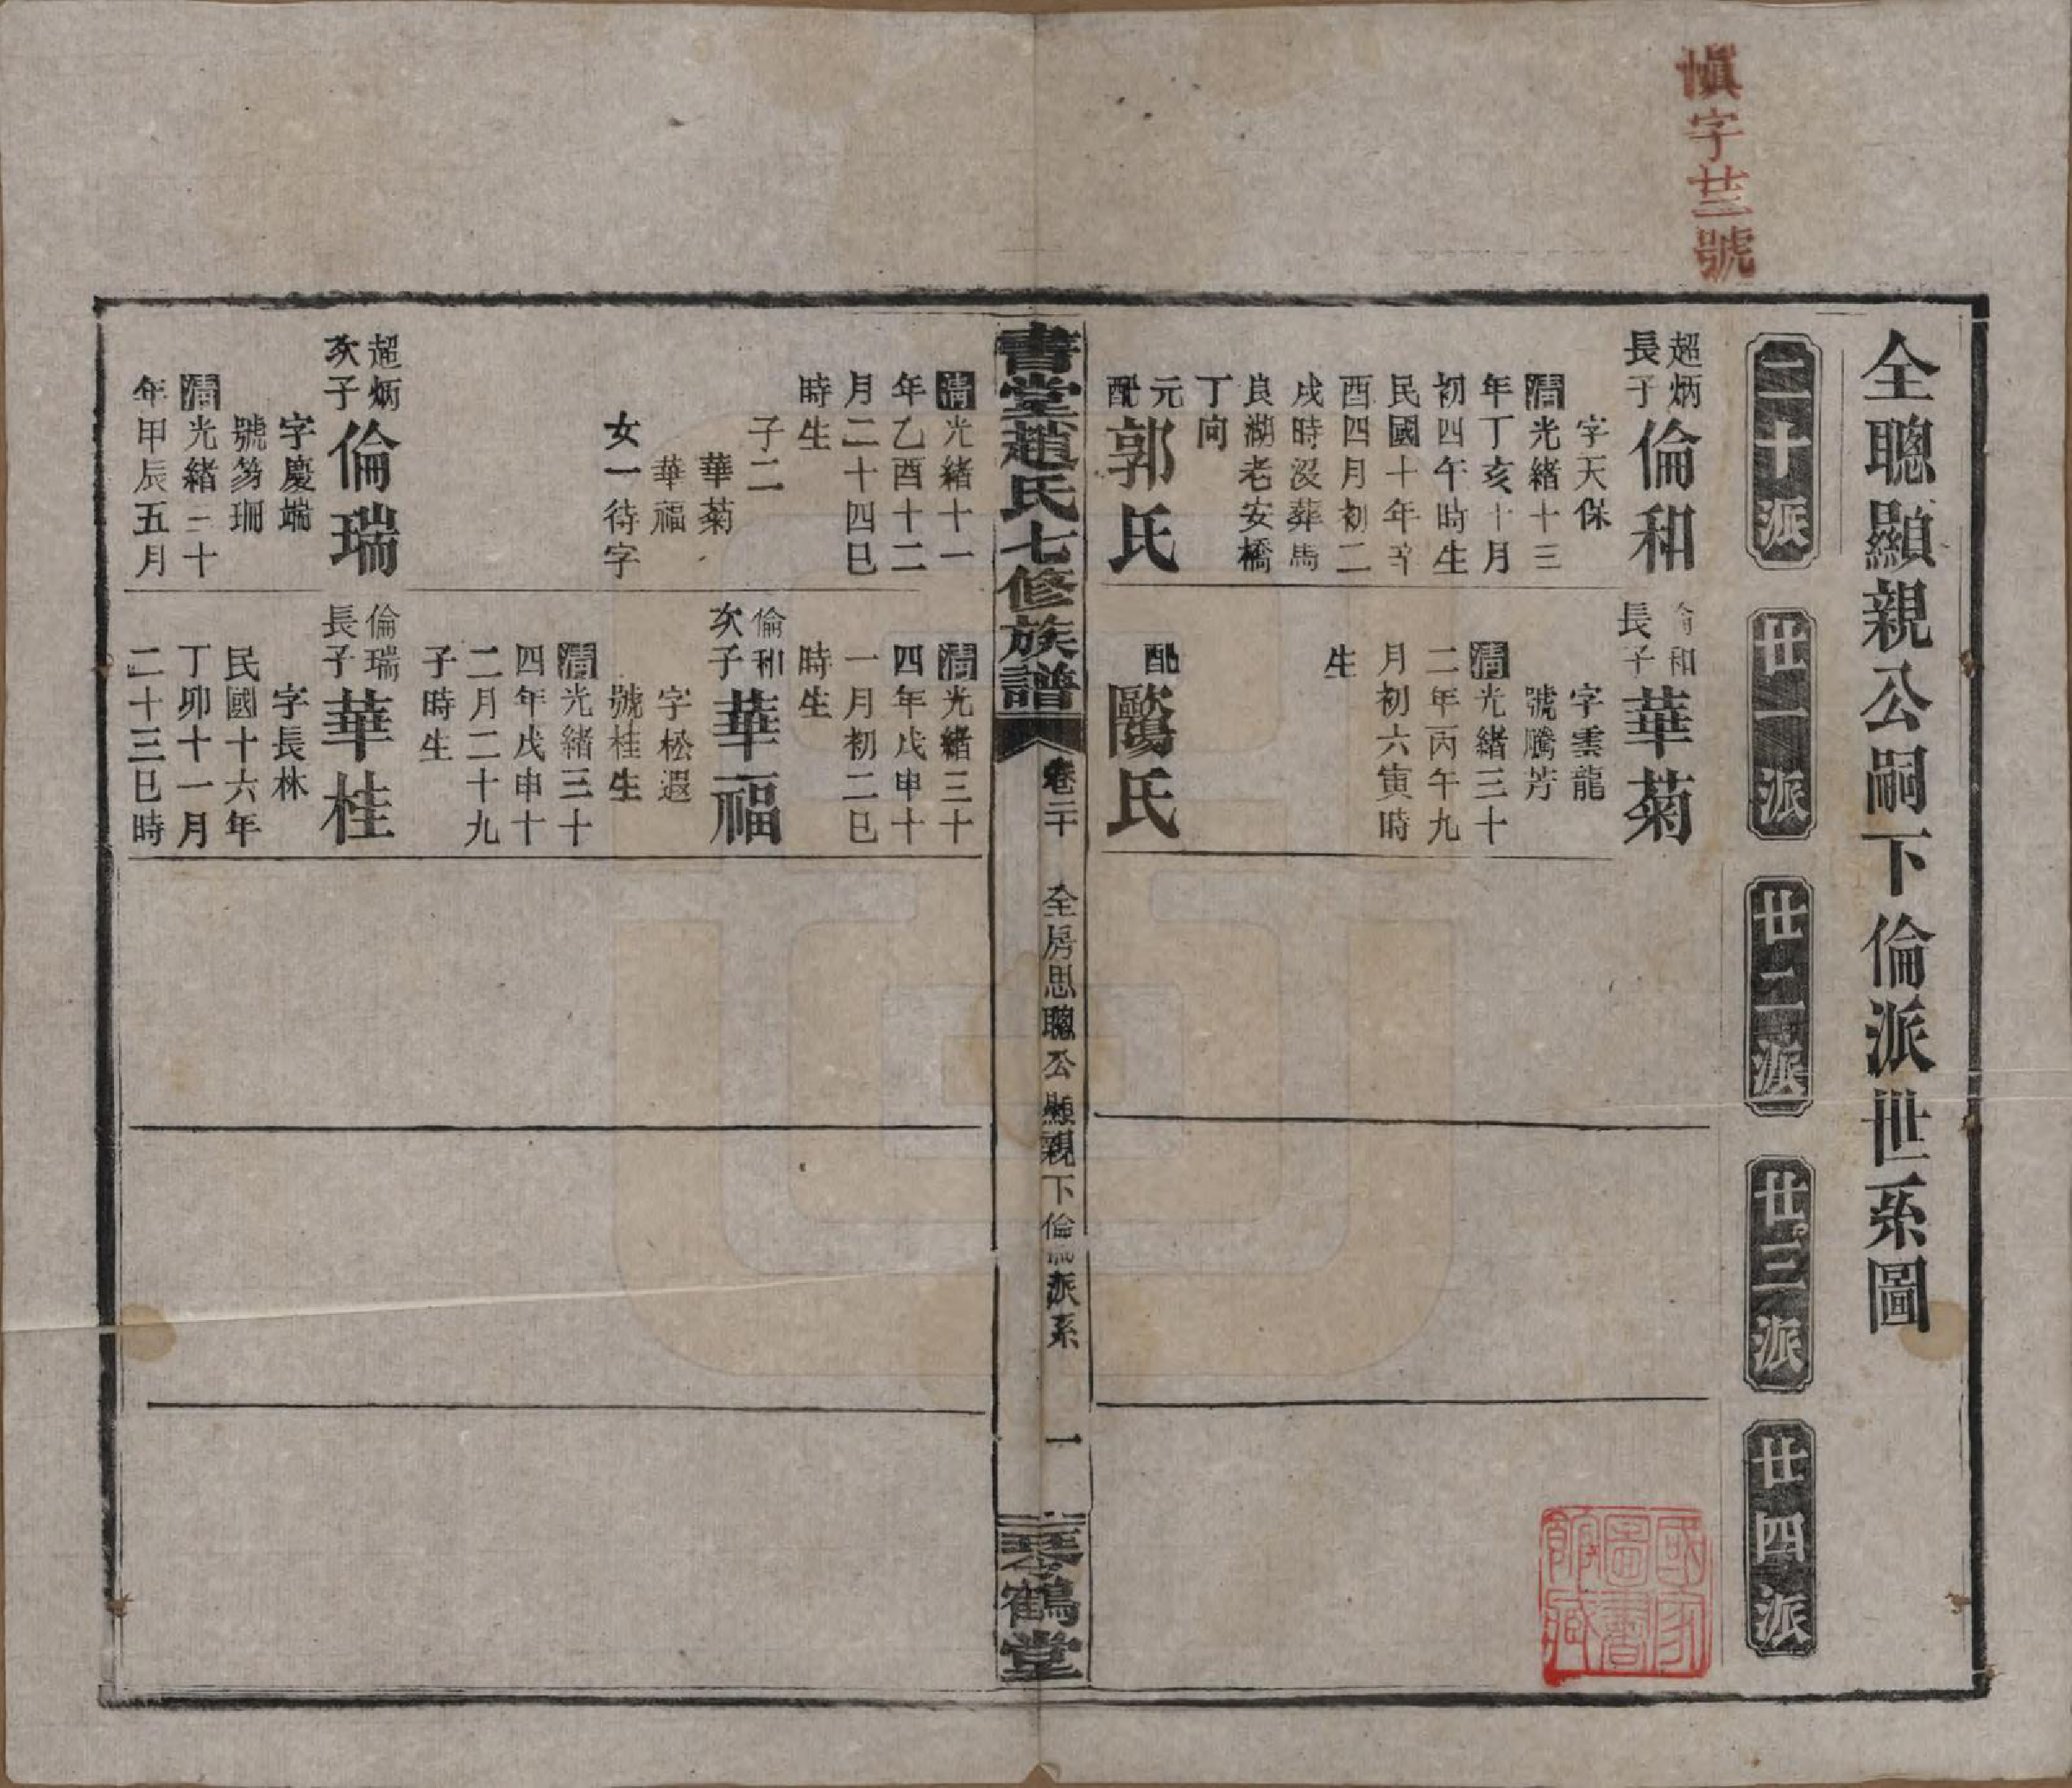 慎字廿三號
全聰顯親公嗣下倫派世系圖
二十派
廿一派
廿二派
廿三派
廿四派
超炳
長子
倫和
字天保
清光緒十三
年丁亥十月
初四午時生
民國十年辛
酉四月初二
戌時沒葬馬
良湖老安橋
丁向
元
配
郭氏
和
長子
華菊
字雲龍
號騰芳
清光緒三十
二年丙午九
月初六寅時
生
配
歐陽氏
書堂趙氏七修族譜
卷二十
全房思聰公顯親下倫派系
一
琴鶴堂
清光緒十一
年乙酉十二
月二十四巳
時生
子二
華菊
華福
女一待字
超炳
次子
倫瑞
字慶端
號芴珊
清光緒三十
年甲辰五月
清光緒三十
四年戊申十
一月初二巳
時生
倫和
次子
華福
字松遐
號桂生
清光緒三十
四年戊申十
二月二十九
子時生
倫瑞
長子
華桂
字長林
民國十六年
丁卯十一月
二十三巳時
國家
圖書
館藏